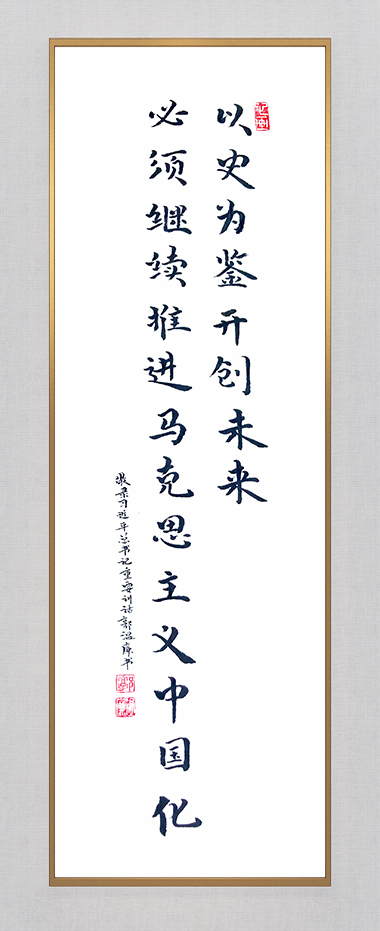 以史为鉴开创未来
必须继续推进马克思主义中国化
敬录习近平总书记重要训话郭温庠书